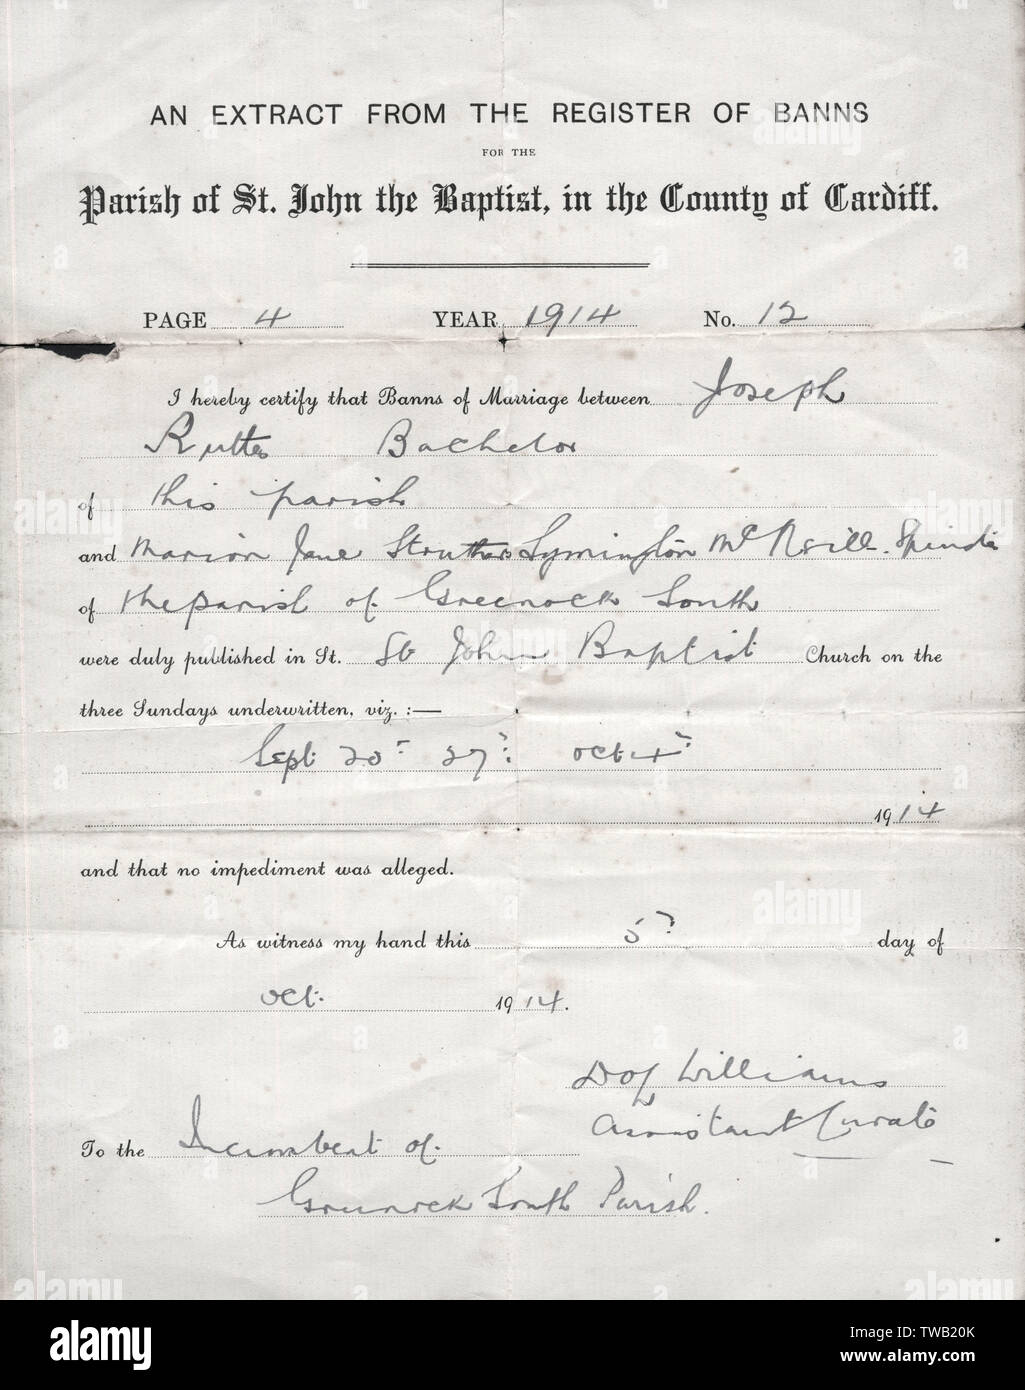 AN EXTRACT FROM THE REGISTER OF BANNS
FOR THE
Parish of St. John the Baptist, in the County of Cardiff.
PAGE 4 YEAR 1914 No. 12
I hereby certify that Banns of Marriage between Joseph
Rutter Bachelor
of this parish
and Marion Jane Struthers Symington McNeill. Spinster
of the parish of Greenock South
were duly published in St. St John Baptist Church on the
three Sundays underwritten, viz. :—
Sept 20 27 Oct 4
1914
and that no impediment was alleged.
As witness my hand this 5 day of
Oct. 1914.
Williams
Assistant Curate
To the Incumbent of
Greenock South Parish.
alamy
Image ID: TWB20K
www.alamy.com